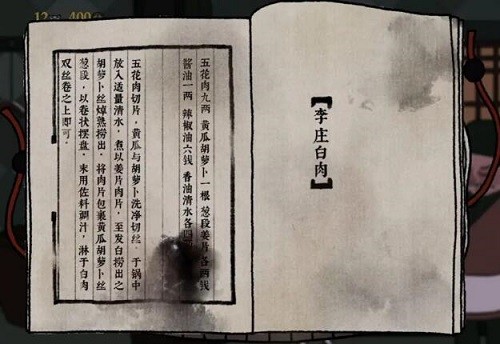 【李庄白肉】
五花肉九两 黄瓜胡萝卜一根 葱段姜片各两钱
酱油一两 辣椒油六钱 香油清水各四
五花肉切片,黄瓜与胡萝卜洗净切丝。于锅中
放入适量清水,煮以姜片肉片,至发白捞出之
胡萝卜丝焯熟捞出,将肉片包裹黄瓜胡萝卜丝
葱段,以卷状摆盘,末用佐料调汁,淋于白肉
双丝卷之上即可。